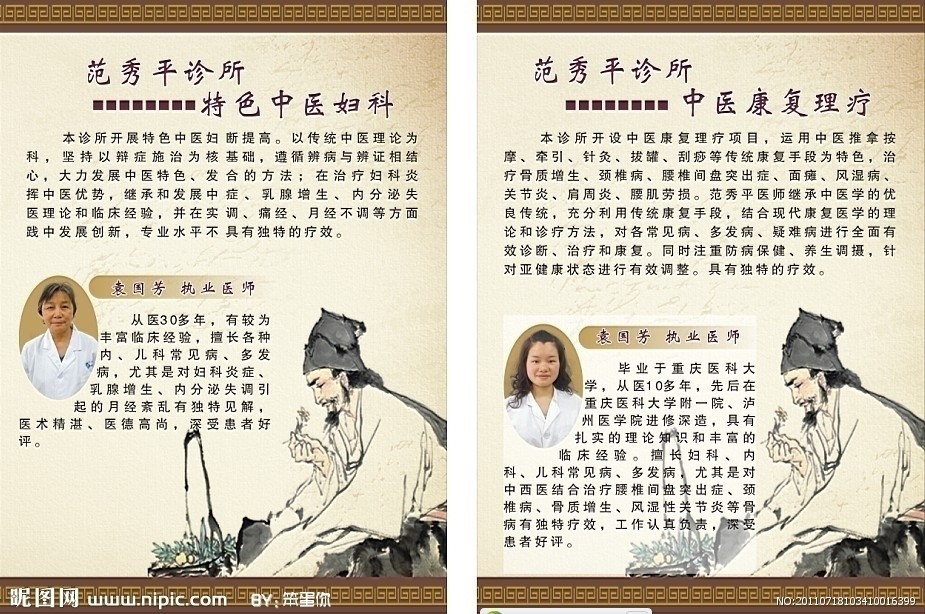 范秀平诊所
特色中医妇科
本诊所开展特色中医妇 断提高。以传统中医理论为
科，坚持以辩症施治为核 基础，遵循辨病与辨证相结
心，大力发展中医特色、发 合的方法；在治疗妇科炎
挥中医优势，继承和发展中 症、乳腺增生、内分泌失
医理论和临床经验，并在实 调、痛经、月经不调等方面
践中发展创新，专业水平不 具有独特的疗效。
袁国芳 执业医师
从医30多年，有较为
丰富临床经验，擅长各种
内、儿科常见病、多发
病，尤其是对妇科炎症、
乳腺增生、内分泌失调引
起的月经紊乱有独特见解，
医术精湛、医德高尚，深受患者好
评。
范秀平诊所
中医康复理疗
本诊所开设中医康复理疗项目，运用中医推拿按
摩、牵引、针灸、拔罐、刮痧等传统康复手段为特色，治
疗骨质增生、颈椎病、腰椎间盘突出症、面瘫、风湿病、
关节炎、肩周炎、腰肌劳损。范秀平医师继承中医学的优
良传统，充分利用传统康复手段，结合现代康复医学的理
论和诊疗方法，对各常见病、多发病、疑难病进行全面有
效诊断、治疗和康复。同时注重防病保健、养生调摄，针
对亚健康状态进行有效调整。具有独特的疗效。
袁国芳 执业医师
毕业于重庆医科大
学，从医10多年，先后在
重庆医科大学附一院、泸
州医学院进修深造，具有
扎实的理论知识和丰富的
临床经验。擅长妇科、内
科、儿科常见病、多发病，尤其是对
中西医结合治疗腰椎间盘突出症、颈
椎病、骨质增生、风湿性关节炎等骨
病有独特疗效，工作认真负责，深受
患者好评。
昵图网 www.nipic.com BY：笨蛋你
NO:20110718103410016399